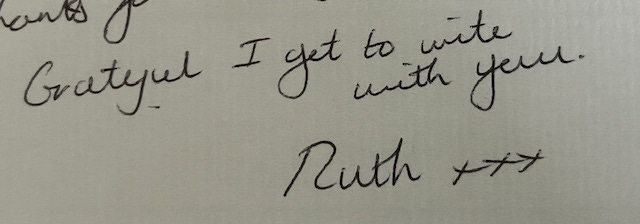 Grateful I get to write
with you.
Ruth xxx